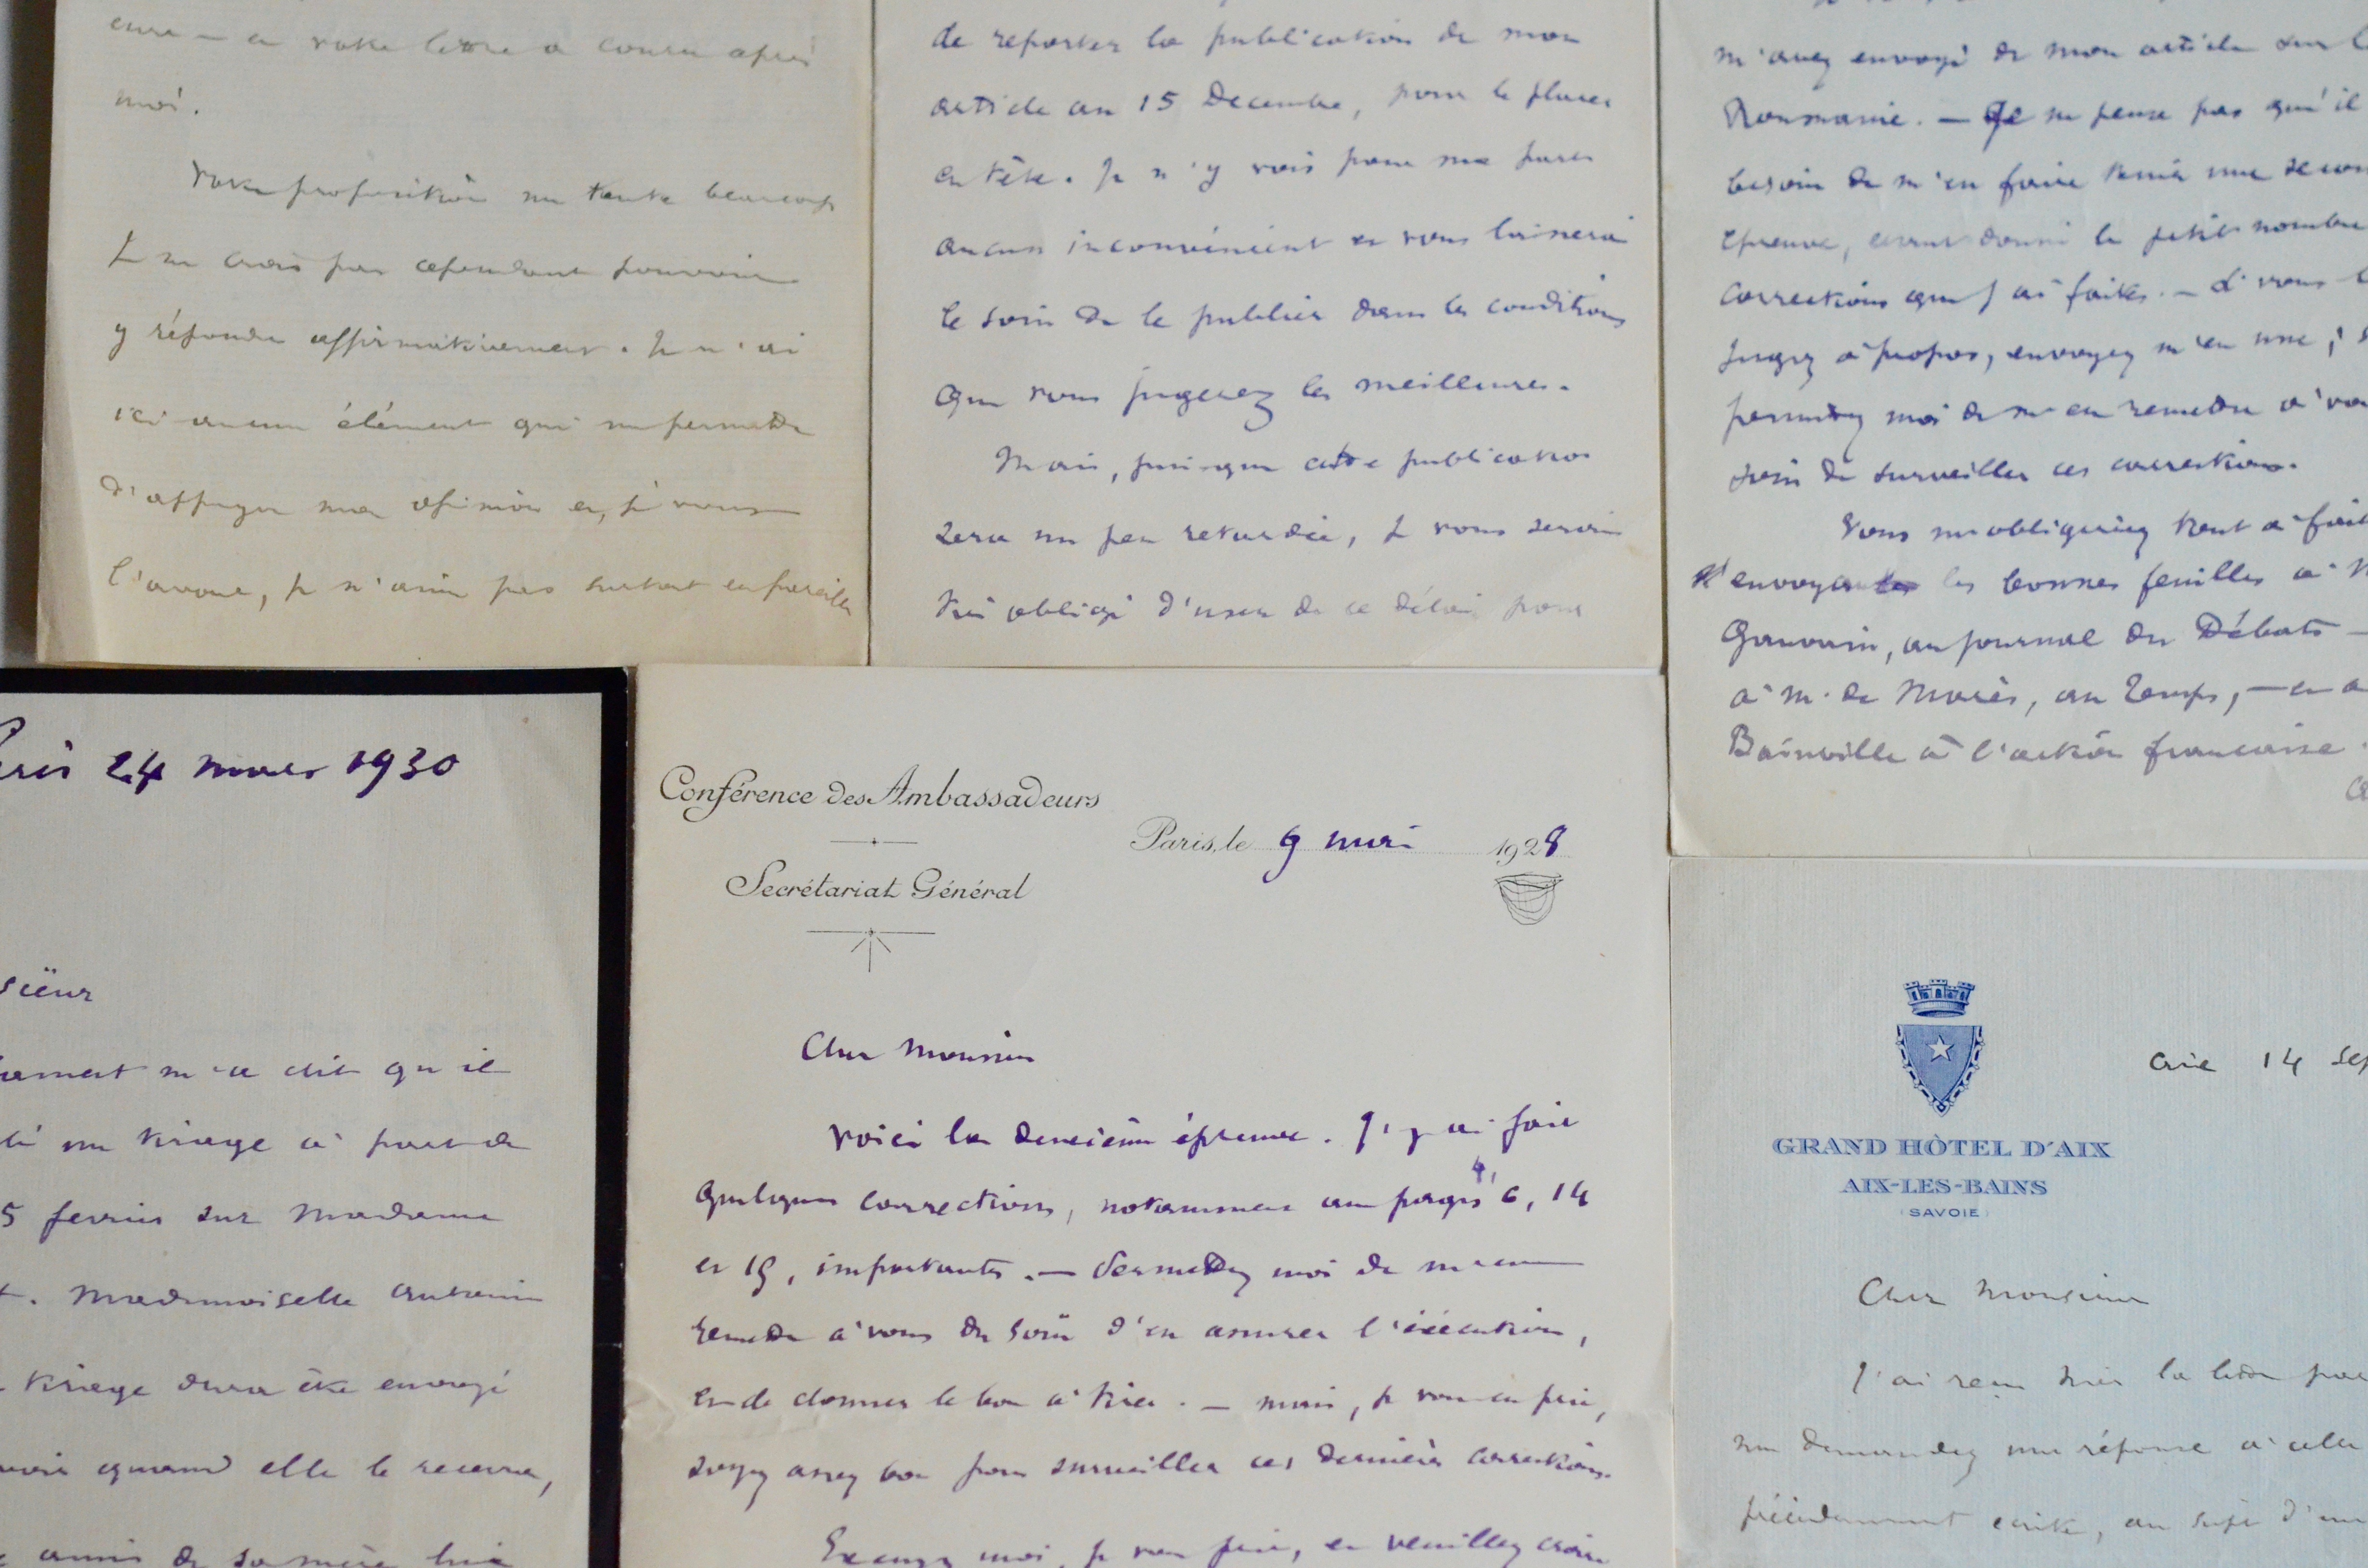 et votre lettre a couru après
moi.
Votre proposition me tente beaucoup
Je ne crois pas cependant pouvoir
y répondre affirmativement. Je n'ai
ici aucun élément qui me permette
d'appuyer mon opinion et, je vous
l'avoue, je n'aime pas surtout en pareille
de reporter la publication de mon
article au 15 Decembre, pour le placer
en tête. Je n'y vois pour ma part
aucun inconvénient et vous laisserai
le soin de le publier dans les conditions
que vous jugerez les meilleures.
Mais, puisque cette publication
sera un peu retardée, je vous serais
très obligé d'user de ce délai pour
m'avez envoyé de mon article sur l
Roumanie. — Je ne pense pas qu'il
besoin de m'en faire tenir une secon
épreuve, étant donné le petit nombre
corrections que j'ai faites. — Si vous l
jugez à propos, envoyez m'en une; s
permettez moi de m'en remettre à vo
soin de surveiller ces corrections.
Vous m'obligeriez tout à fait
d'envoyer les bonnes feuilles à M
Gauvain, au journal des Débats —
à M. de Marès, au Temps, — et à
Bainville à l'action française.
Paris 24 mars 1930
sieur
m'a dit qu'il
un tirage à part du
5 fevrier sur Madame
. Mademoiselle
tirage devra être envoyé
quand elle le recevra,
amis de sa mère lui
Conférence des Ambassadeurs
Secrétariat Général
Paris, le 9 mai 1928
Cher Monsieur
Voici la deuxième épreuve. J'y ai fait
quelques corrections, notamment aux pages 4, 6, 14
et 19, importantes. — Permettez moi de m'en
remettre à vous du soin d'en assurer l'exécution,
et de donner le bon à tirer. — Mais, je vous en prie,
soyez assez bon pour surveiller ces dernières corrections.
Excusez moi, je vous prie, et veuillez croire
GRAND HÔTEL D'AIX
AIX-LES-BAINS
(SAVOIE)
Aix 14 Sep
Cher Monsieur
J'ai reçu hier la lettre par
me demandez une réponse à celle
précédemment écrite, au sujet d'un